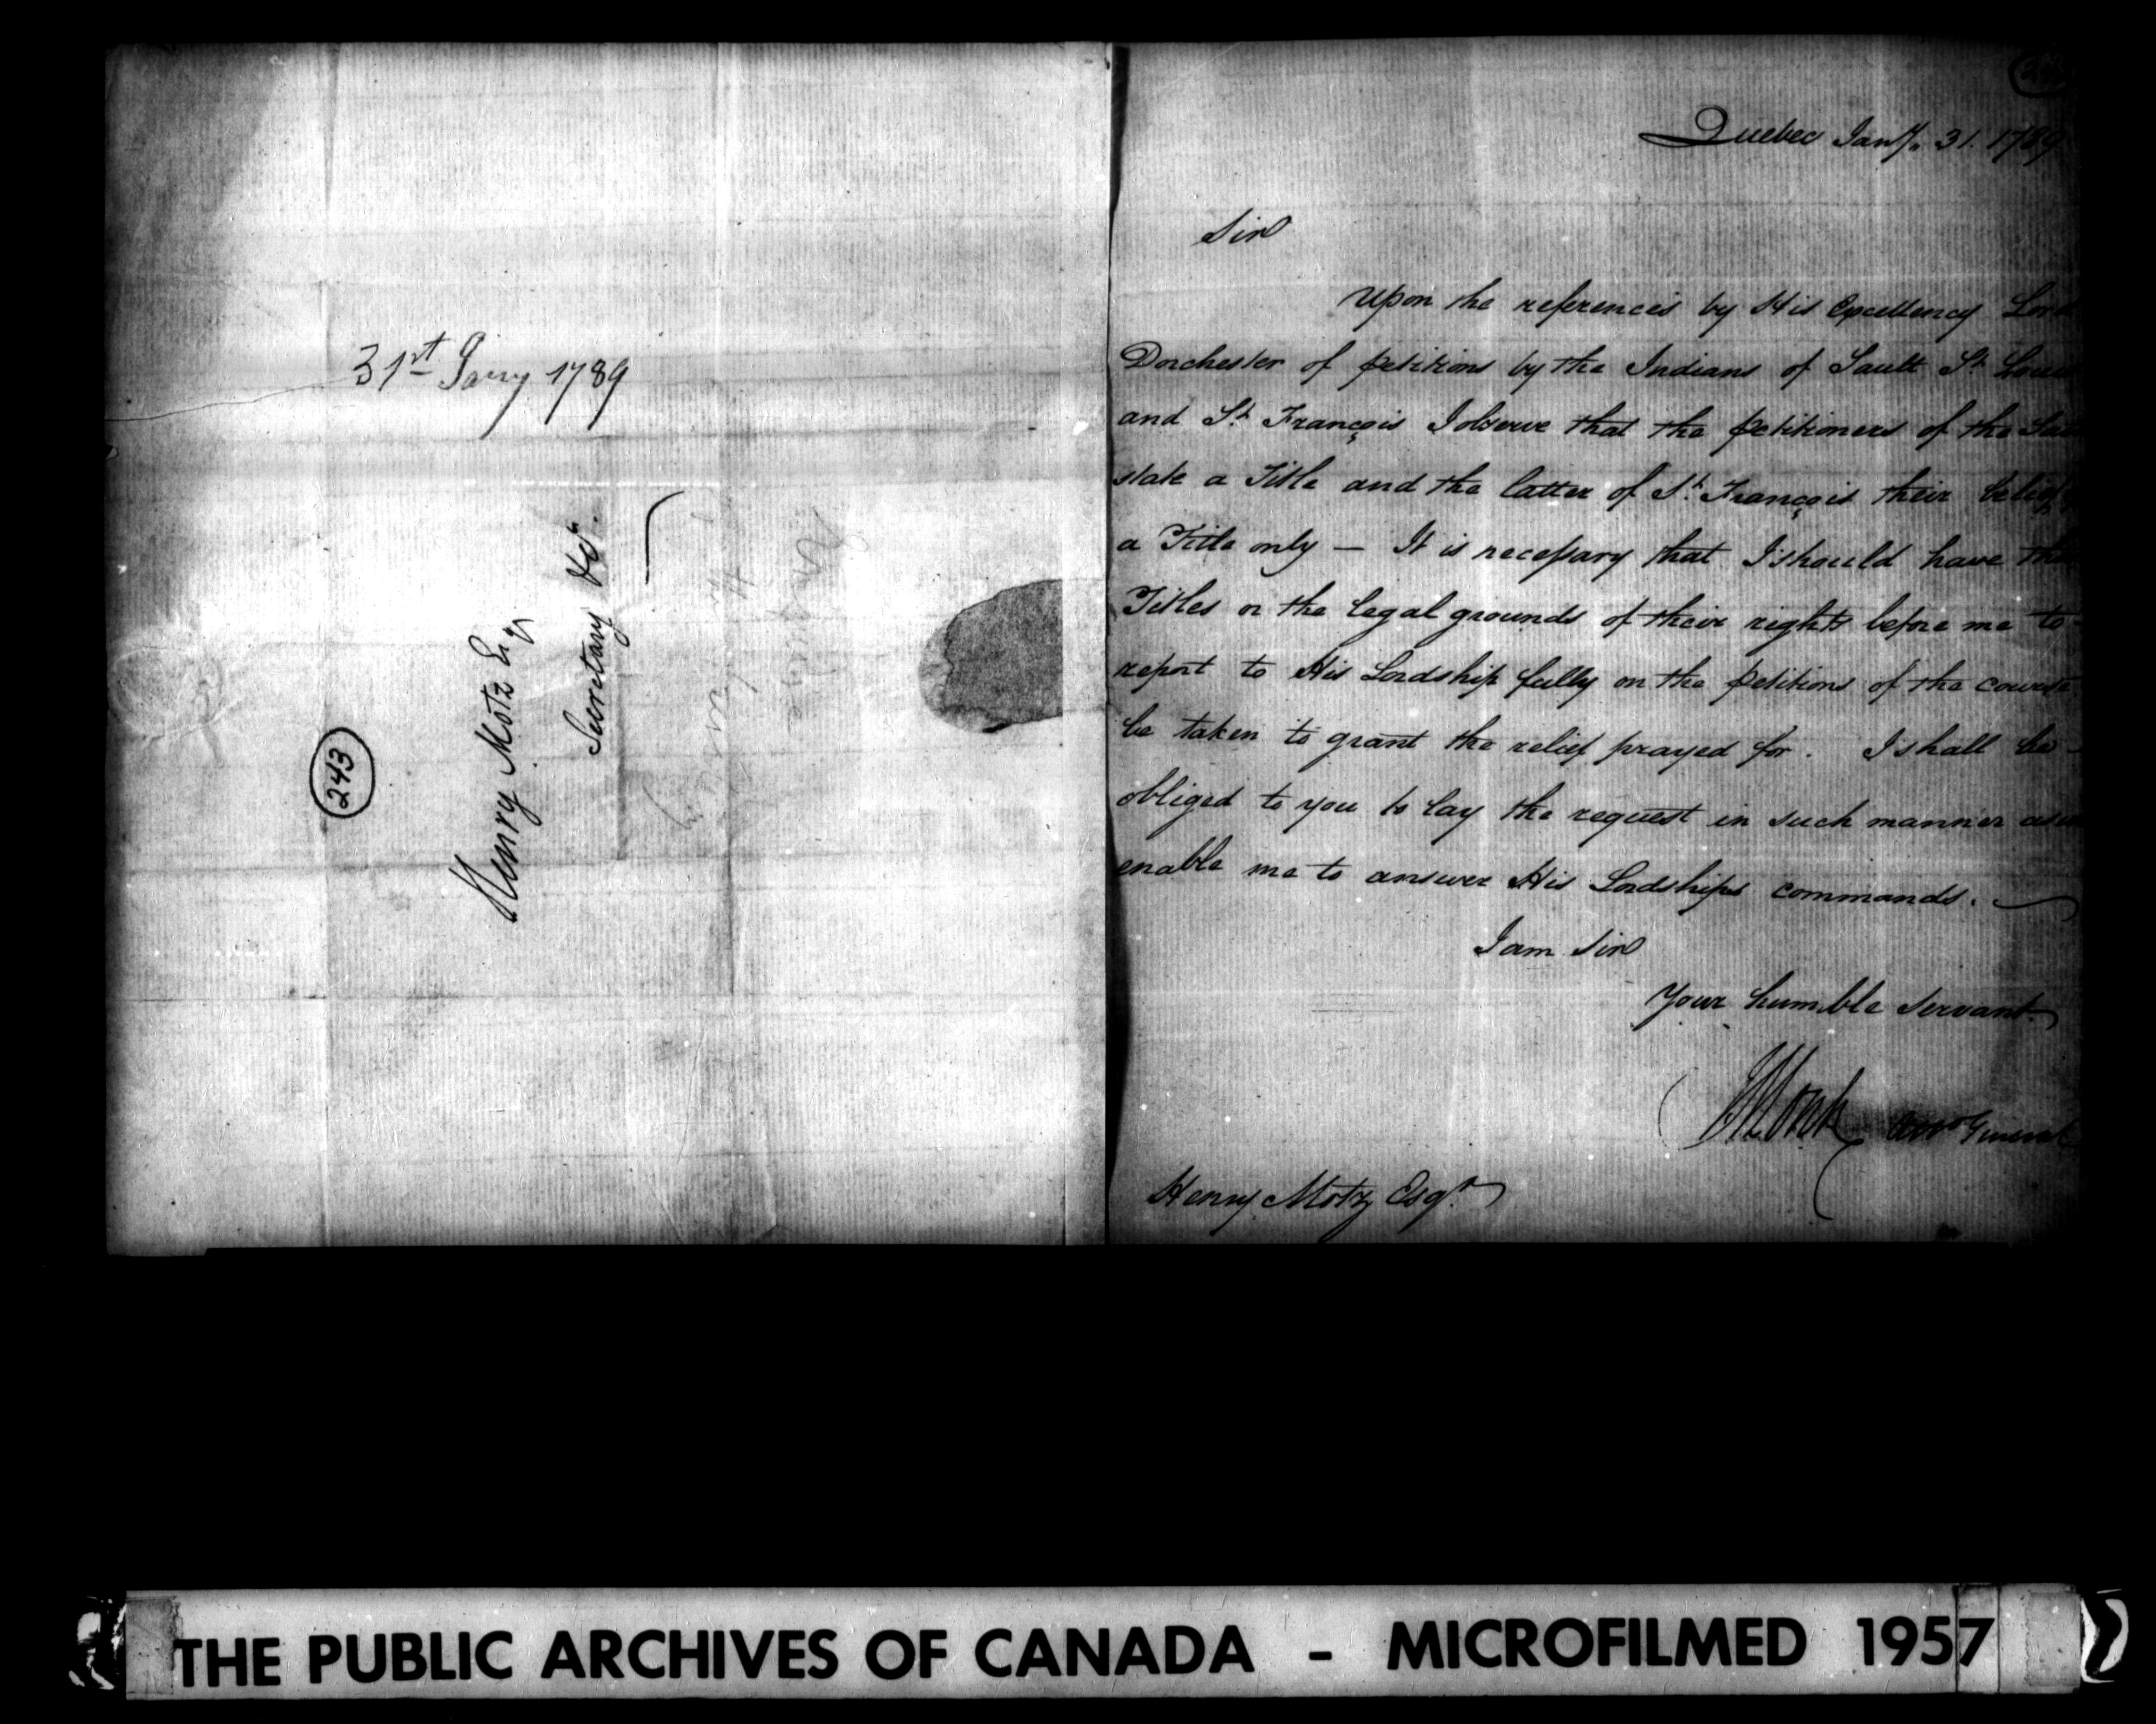 31st Jany 1789
Henry Motz Esqr
Secretary &ca.
243
Quebec Jany. 31. 1789
Sir
Upon the references by His Excellency Lord
Dorchester of petitions by the Indians of Sault St. Louis
and St. François I observe that the petitioners of the
state a Title and the latter of St. François their belief
a Title only — It is necessary that I should have the
Titles or the legal grounds of their rights before me to
report to His Lordship fully on the petitions of the course
be taken to grant the relief prayed for. I shall be
obliged to you to lay the request in such manner as
enable me to answer His Lordships commands.
I am Sir
Your humble Servant
JMonk Atty General
Henry Motz Esqr.
THE PUBLIC ARCHIVES OF CANADA - MICROFILMED 1957